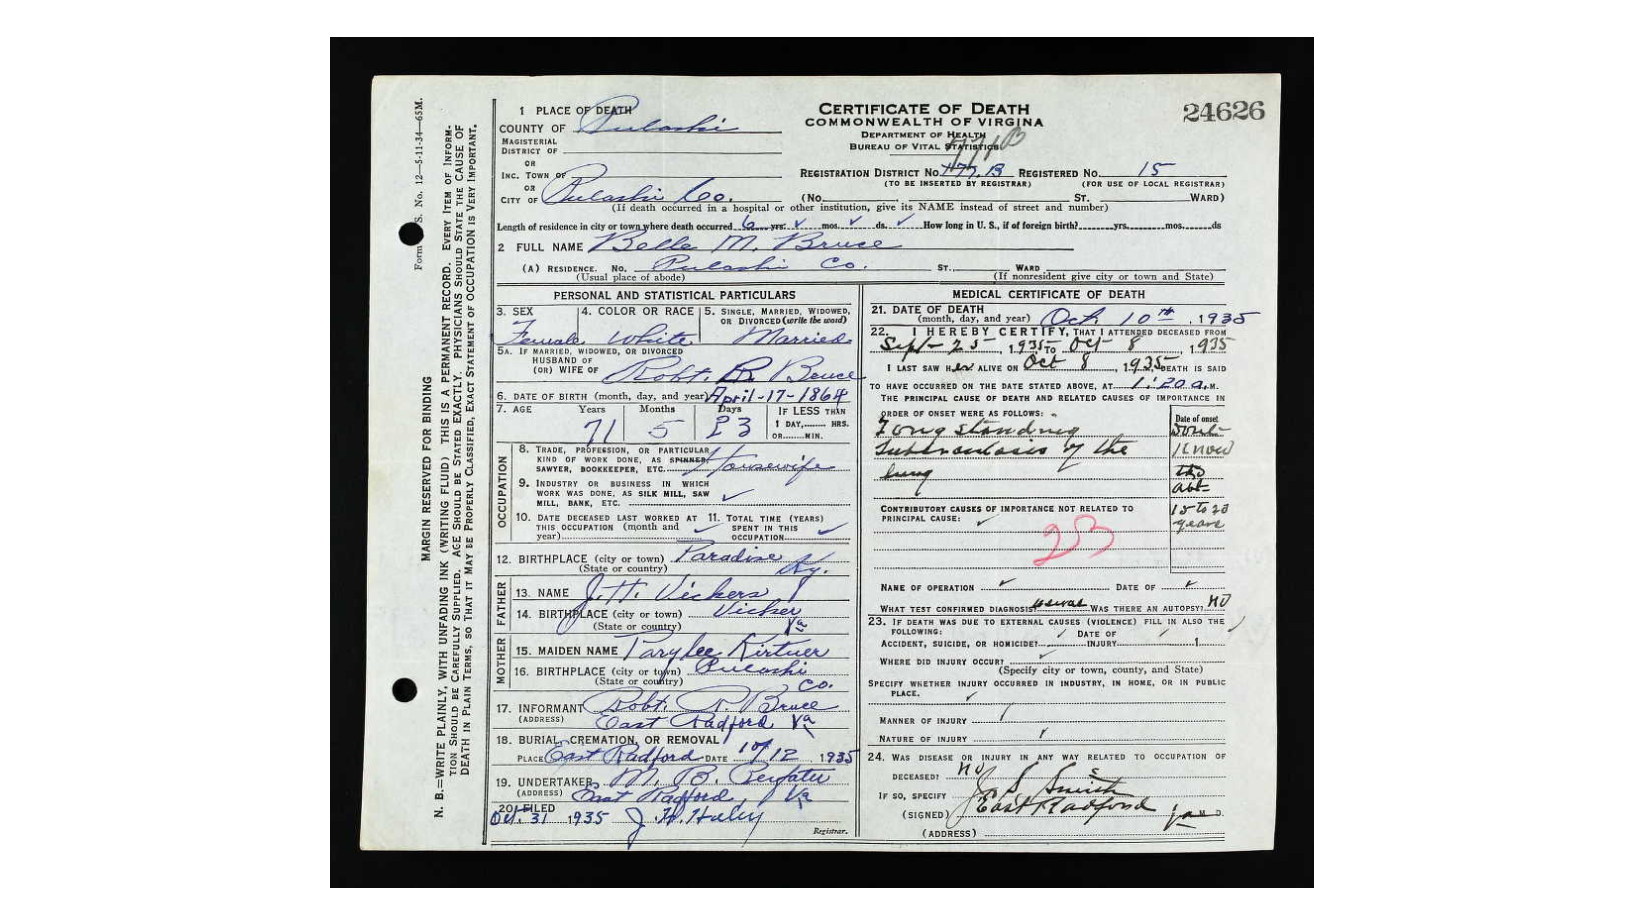 24626
1 PLACE OF DEATH
COUNTY OF Pulaski
MAGISTERIAL
DISTRICT OF
OR
INC. TOWN OF
OR
CITY OF Pulaski Co. (No. ST. WARD)
(If death occurred in a hospital or other institution, give its NAME instead of street and number)
CERTIFICATE OF DEATH
COMMONWEALTH OF VIRGINA
DEPARTMENT OF HEALTH
BUREAU OF VITAL STATISTICS
REGISTRATION DISTRICT NO. 177.B REGISTERED NO. 15
(TO BE INSERTED BY REGISTRAR) (FOR USE OF LOCAL REGISTRAR)
Length of residence in city or town where death occurred 6 yrs. ✓ mos. ✓ ds. ✓ How long in U. S., if of foreign birth? yrs. mos. ds
2 FULL NAME Belle M. Bruce
(A) RESIDENCE. No. Pulaski Co. ST. WARD
(Usual place of abode) (If nonresident give city or town and State)
PERSONAL AND STATISTICAL PARTICULARS
3. SEX 4. COLOR OR RACE 5. SINGLE, MARRIED, WIDOWED,
OR DIVORCED (write the word)
Female White Married
5A. IF MARRIED, WIDOWED, OR DIVORCED
HUSBAND OF
(OR) WIFE OF Robt. R. Bruce
6. DATE OF BIRTH (month, day, and year) April-17-1864
7. AGE Years Months Days IF LESS THAN
1 DAY, HRS.
71 5 23 OR MIN.
OCCUPATION
8. TRADE, PROFESSION, OR PARTICULAR
KIND OF WORK DONE, AS SPINNER,
SAWYER, BOOKKEEPER, ETC. Housewife
9. INDUSTRY OR BUSINESS IN WHICH
WORK WAS DONE, AS SILK MILL, SAW
MILL, BANK, ETC. ✓
10. DATE DECEASED LAST WORKED AT 11. TOTAL TIME (YEARS)
THIS OCCUPATION (month and ✓ SPENT IN THIS
year) OCCUPATION ✓
12. BIRTHPLACE (city or town) Paradise
(State or country) Ky.
FATHER
13. NAME J. H. Vickers
14. BIRTHPLACE (city or town) Vicker
(State or country) Va
MOTHER
15. MAIDEN NAME Kirtner
16. BIRTHPLACE (city or town) Pulaski
(State or country) Co.
17. INFORMANT Robt. R. Bruce
(ADDRESS) East Radford Va
18. BURIAL, CREMATION, OR REMOVAL
PLACE East Radford DATE 10/12, 1935
19. UNDERTAKER M. B.
(ADDRESS) East Radford Va
20. FILED
Oct. 31 1935 J. H. Haley
Registrar.
MEDICAL CERTIFICATE OF DEATH
21. DATE OF DEATH
(month, day, and year) Oct 10th, 1935
22. I HEREBY CERTIFY, THAT I ATTENDED DECEASED FROM
Sept- 25, 1935 TO Oct- 8, 1935
I LAST SAW Her ALIVE ON Oct 8, 1935 DEATH IS SAID
TO HAVE OCCURRED ON THE DATE STATED ABOVE, AT 1:20 a.M.
THE PRINCIPAL CAUSE OF DEATH AND RELATED CAUSES OF IMPORTANCE IN
ORDER OF ONSET WERE AS FOLLOWS:
Date of onset
Long standing Don't
Tuberculosis of the Know
lung
abt
15 to 20
years
CONTRIBUTORY CAUSES OF IMPORTANCE NOT RELATED TO
PRINCIPAL CAUSE: ✓
23
NAME OF OPERATION ✓ DATE OF ✓
WHAT TEST CONFIRMED DIAGNOSIS? usual WAS THERE AN AUTOPSY? NO
23. IF DEATH WAS DUE TO EXTERNAL CAUSES (VIOLENCE) FILL IN ALSO THE
FOLLOWING: ✓ DATE OF ✓
ACCIDENT, SUICIDE, OR HOMICIDE? INJURY 1
WHERE DID INJURY OCCUR? ✓
(Specify city or town, county, and State)
SPECIFY WHETHER INJURY OCCURRED IN INDUSTRY, IN HOME, OR IN PUBLIC
PLACE. ✓
MANNER OF INJURY
NATURE OF INJURY ✓
24. WAS DISEASE OR INJURY IN ANY WAY RELATED TO OCCUPATION OF
DECEASED? NO
IF SO, SPECIFY
(SIGNED) J. S. Smith
East Radford
(ADDRESS)
Form S. No. 12—5-11-34—65M.
MARGIN RESERVED FOR BINDING
N. B.=WRITE PLAINLY, WITH UNFADING INK (WRITING FLUID) THIS IS A PERMANENT RECORD. EVERY ITEM OF INFORM-
TION SHOULD BE CAREFULLY SUPPLIED. AGE SHOULD BE STATED EXACTLY. PHYSICIANS SHOULD STATE THE CAUSE OF
DEATH IN PLAIN TERMS, SO THAT IT MAY BE PROPERLY CLASSIFIED, EXACT STATEMENT OF OCCUPATION IS VERY IMPORTANT.